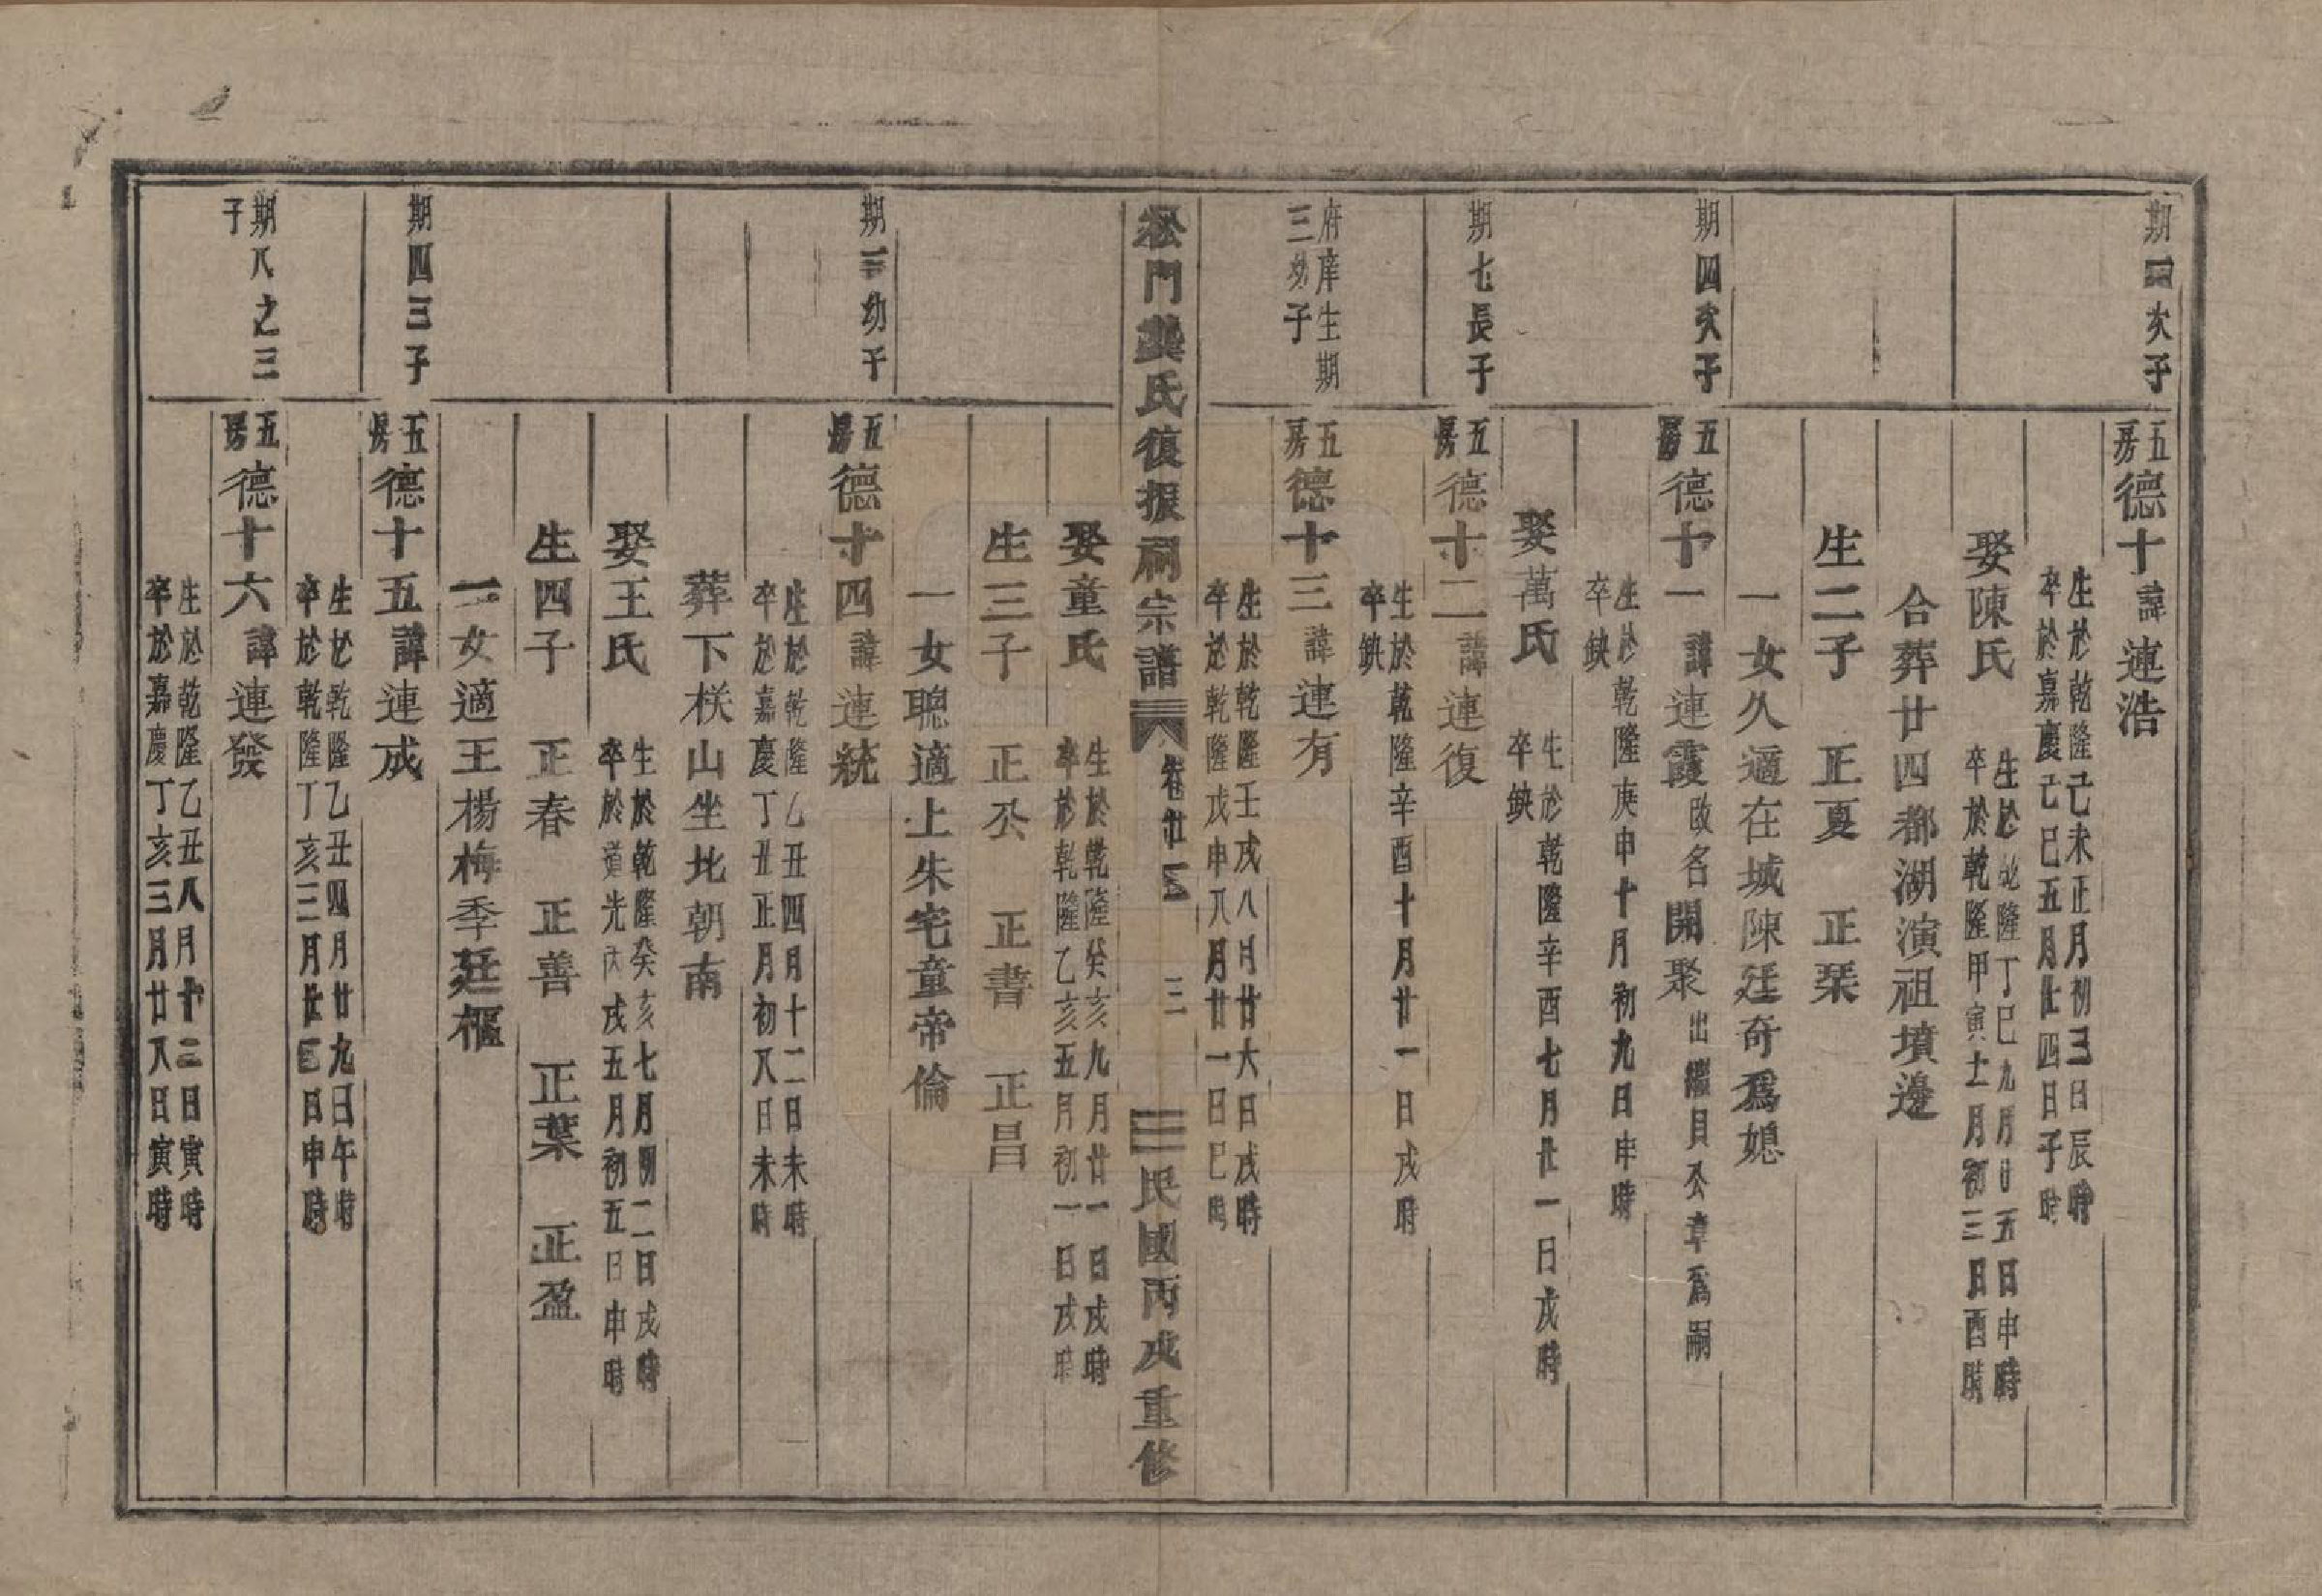 期次子
五房德十諱連浩
生於乾隆己未正月初三日辰時
卒於嘉慶己巳五月廿四日子時
娶陳氏
生於乾隆丁巳九月廿五日申時
卒於乾隆甲寅十一月初三日酉時
合葬廿四都湖演祖墳邊
生二子 正夏 正琹
一女久適在城陳廷奇爲媳
期四次子
五房德十一諱連霞改名開聚出繼目公章爲嗣
生於乾隆庚申十月初九日申時
卒缺
娶萬氏
生於乾隆辛酉七月廿一日戌時
卒缺
期七長子
五房德十二諱連復
生於乾隆辛酉十月廿一日戌時
卒缺
府庠生期三幼子
五房德十三諱連有
生於乾隆壬戌八月廿六日戌時
卒於乾隆戊申八月廿一日巳時
松門龔氏復振祠宗譜 卷廿 三 民國丙戌重修
娶童氏
生於乾隆癸亥九月廿一日戌時
卒於乾隆乙亥五月初一日戌時
生三子 正公 正書 正昌
一女聰適上朱宅童帝倫
期幼子
五房德十四諱連統
生於乾隆乙丑四月十二日未時
卒於嘉慶丁丑正月初八日未時
葬下栚山坐北朝南
娶王氏
生於乾隆癸亥七月初二日戌時
卒於道光丙戌五月初五日申時
生四子 正春 正善 正葉 正盈
一女適王楊梅季廷樞
期四三子
五房德十五諱連成
生於乾隆乙丑四月廿九日午時
卒於乾隆丁亥三月廿日申時
期八之三子
五房德十六諱連發
生於乾隆乙丑八月十二日寅時
卒於嘉慶丁亥三月廿八日寅時